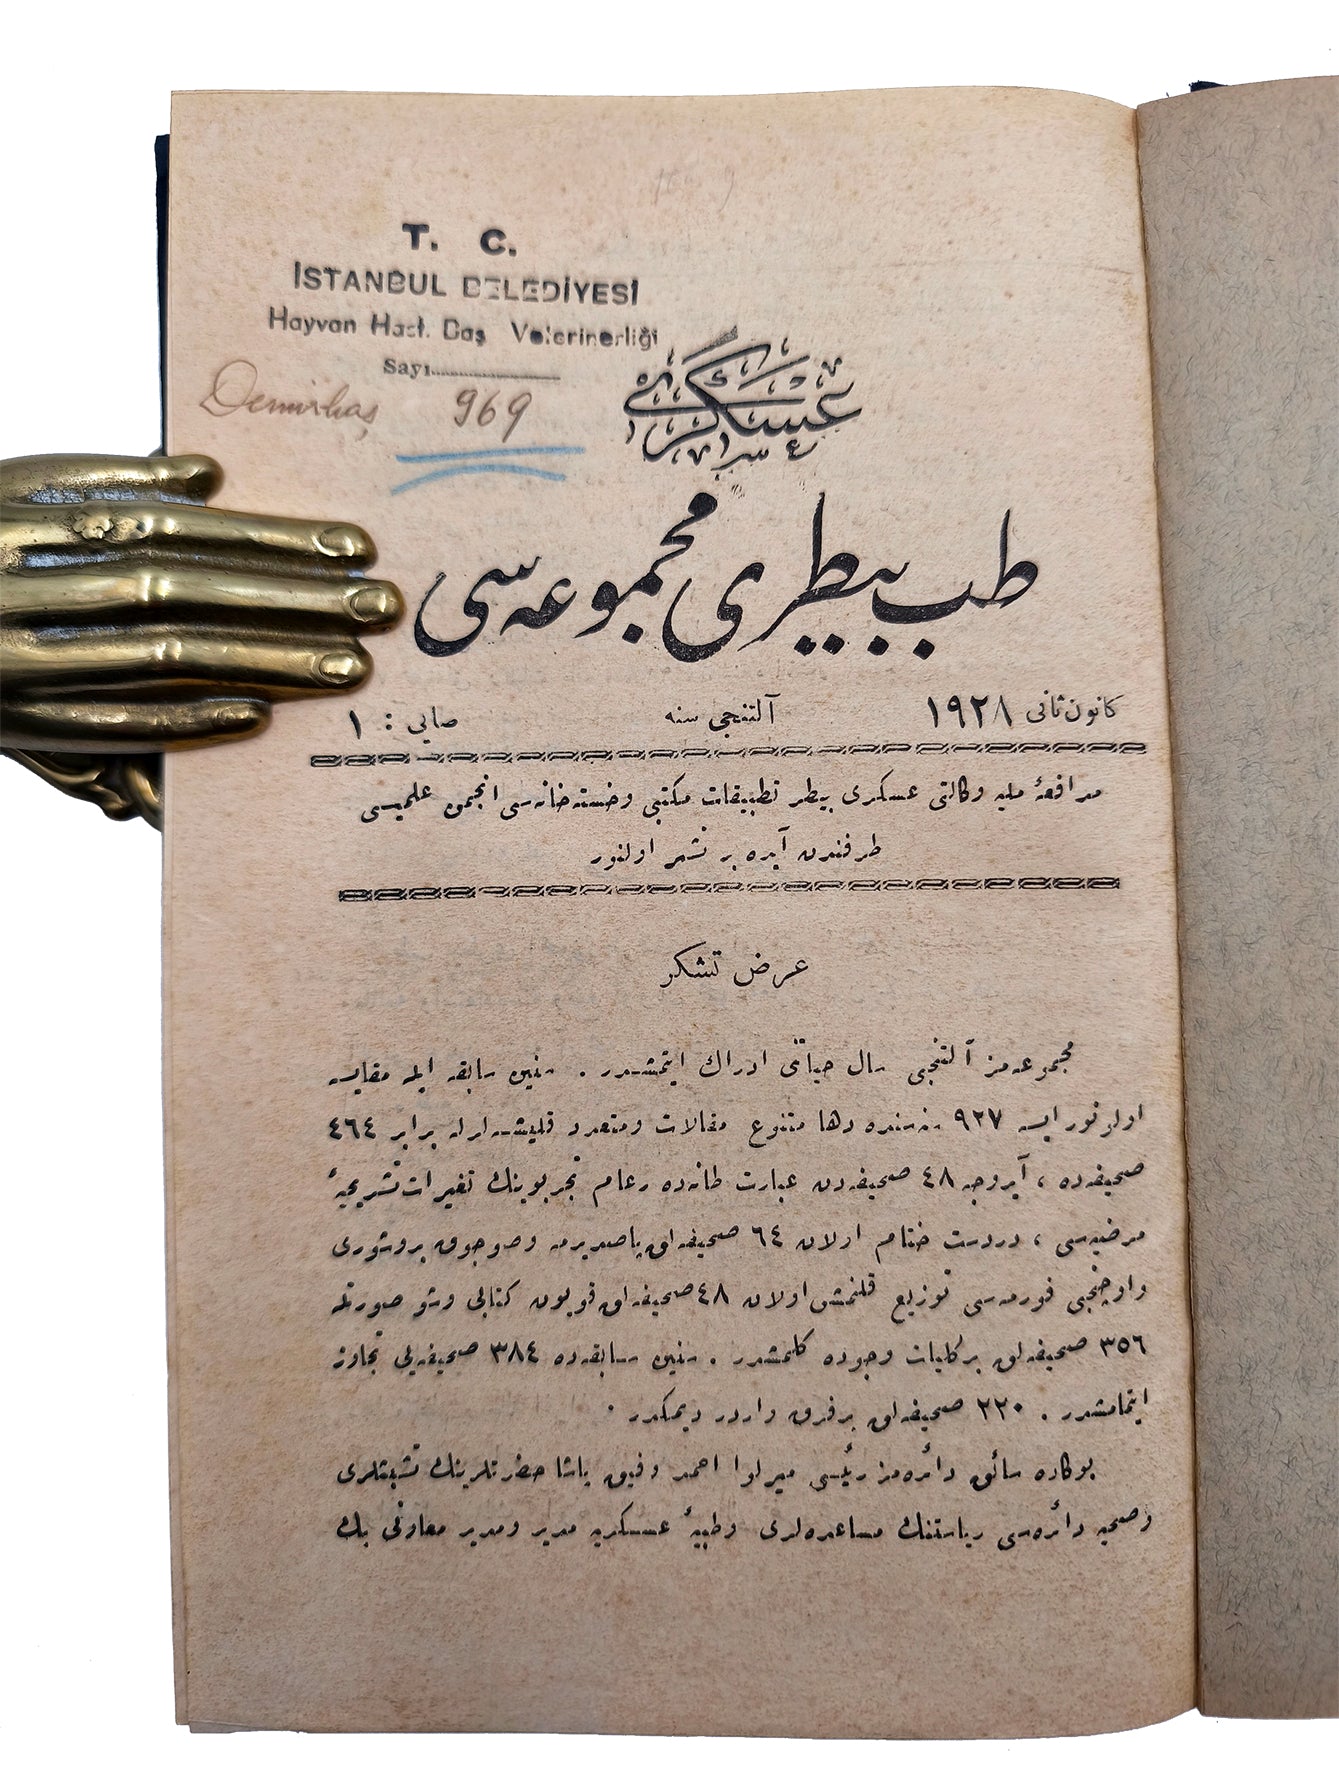 T. C.
İSTANBUL BELEDİYESİ
Hayvan Hast. Baş Veterinerliği
Sayı
Demirbaş 969
عسكری
طب بیطری مجموعه‌سی
كانون ثانی ١٩٢٨ آلتنجی سنه صایی : ١
مدافعهٔ ملیه وكالتی عسكری بیطر تطبیقات مكتبی وخسته‌خانه‌سی انجمن علمیسی
طرفندن آیده بر نشر اولنور
عرض تشكر
مجموعه‌مز آلتنجی سال حیاتنی ادراك ایتمشدر . سنین سابقه ایله مقایسه
اولونورایسه ٩٢٧ سنه‌سنده دها متنوع مقالات ومتعدد قلیشه‌لرله برابر ٤٦٤
صحیفه‌ده ، آیروجه ٤٨ صحیفه‌دن عبارت طانه‌ده رعام تجربوینك تغیرات تشریحیهٔ
مرضیه‌سی ، دردست ختام اولان ٦٤ صحیفه‌لق پاصدیرمه وصوجوق بروشوری
واوچنجی فورمه‌سی توزیع قلنمش اولان ٤٨ صحیفه‌لق قویون كتابی وشو صورتله
٣٥٦ صحیفه‌لق بر كلیات وجوده كلمشدر . سنین سابقه‌ده ٣٨٤ صحیفه‌یی تجاوز
ایتمامشدر . ٢٢٠ صحیفه‌لق بر فرق واردر دیمكدر .
بوكاده سائق دائره‌مز رئیسی میرلوا احمد رفیق پاشا حضرتلرینك تشبثلری
وصحیه دائره‌سی ریاستنك مساعده‌لری وطبیهٔ عسكریه مدیر ومدیر معاونی بك